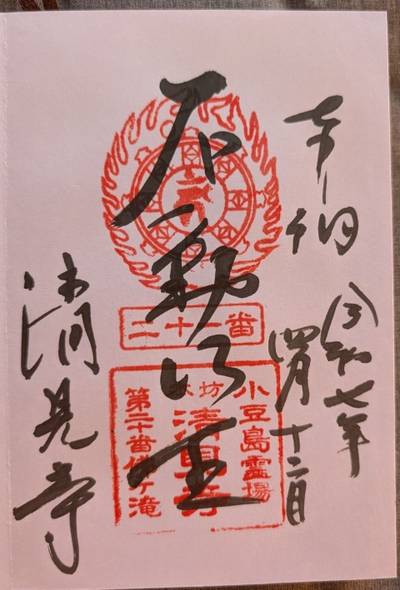 奉
令和七年
四月十二日
不動明王
清見寺
二十一番
小豆島霊場
坊
清見寺
第二十番佛ヶ滝